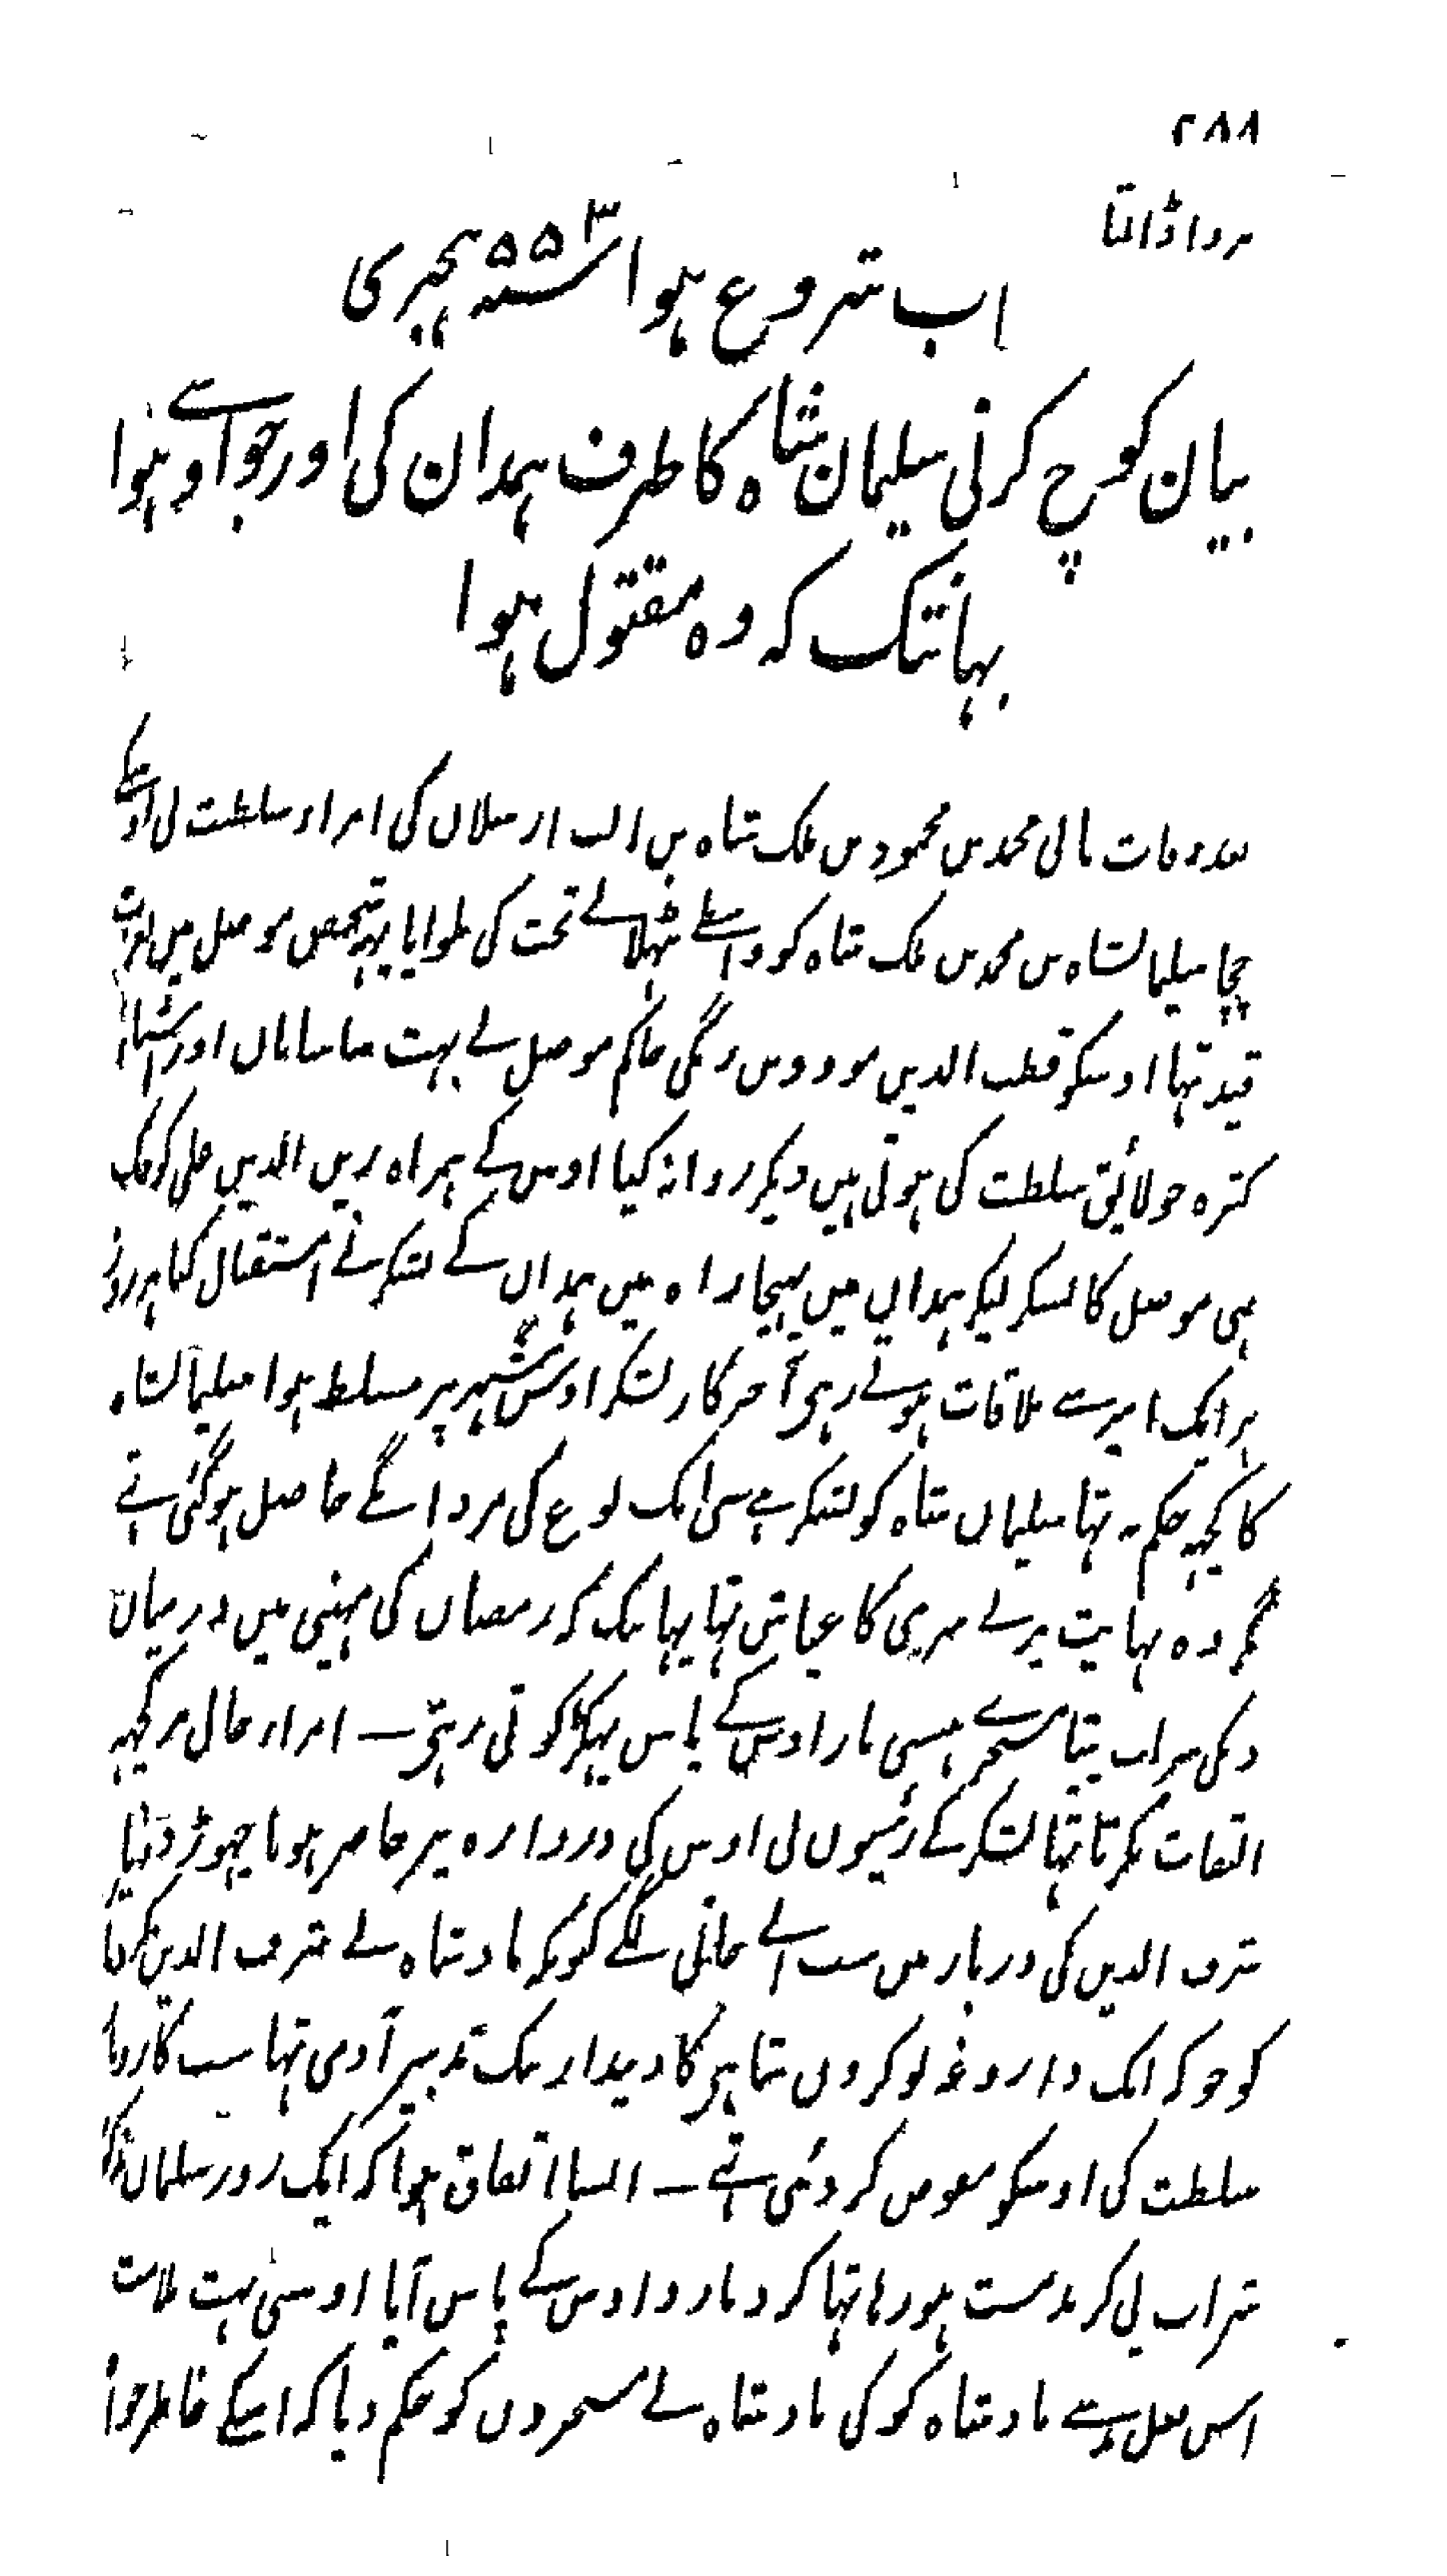 ۲۸۸
مرواڈالتا
اب شروع ہوا سنہ ۵۵۳ ہجری
بیان کوچ کرنی سلیمان شاہ کا طرف ہمدان کی اور جو اوسے ہوا
یہانتک کہ وہ مقتول ہوا
بعد وفات محمد بن محمود بن ملک شاہ بن الب ارسلان کی امراء سلطنت نی اوسکے
چچا سلیمانشاہ بن محمد بن ملک شاہ کو واسطے بٹہلانے تخت کی بلوایا یہہ شخص موصل میں
قید تہا اوسکو قطب الدین مودود بن زنگی حاکم موصل نے بہت سا سامان اور اشیاء
کثرہ جو لائق سلطنت کی ہوتی ہیں دیکر روانہ کیا اوس کے ہمراہ زین الدین علی کوچک
بہی موصل کا لشکر لیکر ہمدان میں پہنچا راہ میں ہمدان کے لشکر نے استقبال کیا ہر روز
ہر ایک امیر سے ملاقات ہوتے رہی آخر کار لشکر اوس شہر پر مسلط ہوا سلیمانشاہ
کا کچہہ حکم نہ تہا سلیمان شاہ کو لشکر سے ایک نوع کی مردانگے حاصل ہوگئی تہے
مگر وہ نہایت پرلے سری کا عیاش تہا یہانتک کہ رمضان کی مہینی میں درمیان
دن کی شراب پیتا مسخرے ہنسی باز اوس کے پاس بہیڑ کوتی رہتی ۔ امراء حال پر کچہہ
التفات نکرتا تہا لشکر کے رئیسوں نی اوس کی دروازہ پر حاضر ہونا چہوڑ دیا
شرف الدین کی دربار میں سب آنے جانی لگے کیونکہ بادشاہ نے شرف الدین
کو جو کہ ایک داروغہ نوکروں شاہی کا دیندار نیک تدبیر آدمی تہا سب کاروبار
سلطنت کی اوسکو مفوض کر دئی تہے ۔ ایسا اتفاق ہوا کہ ایک روز سلیمان
شراب پی کر بدمست ہو رہا تہا کہ دبازو اوس کے پاس آیا اوسنی بہت ملامت
اس فعل بد سے بادشاہ کو کی بادشاہ نے مسخروں کو حکم دیا کہ اسکے خاطر